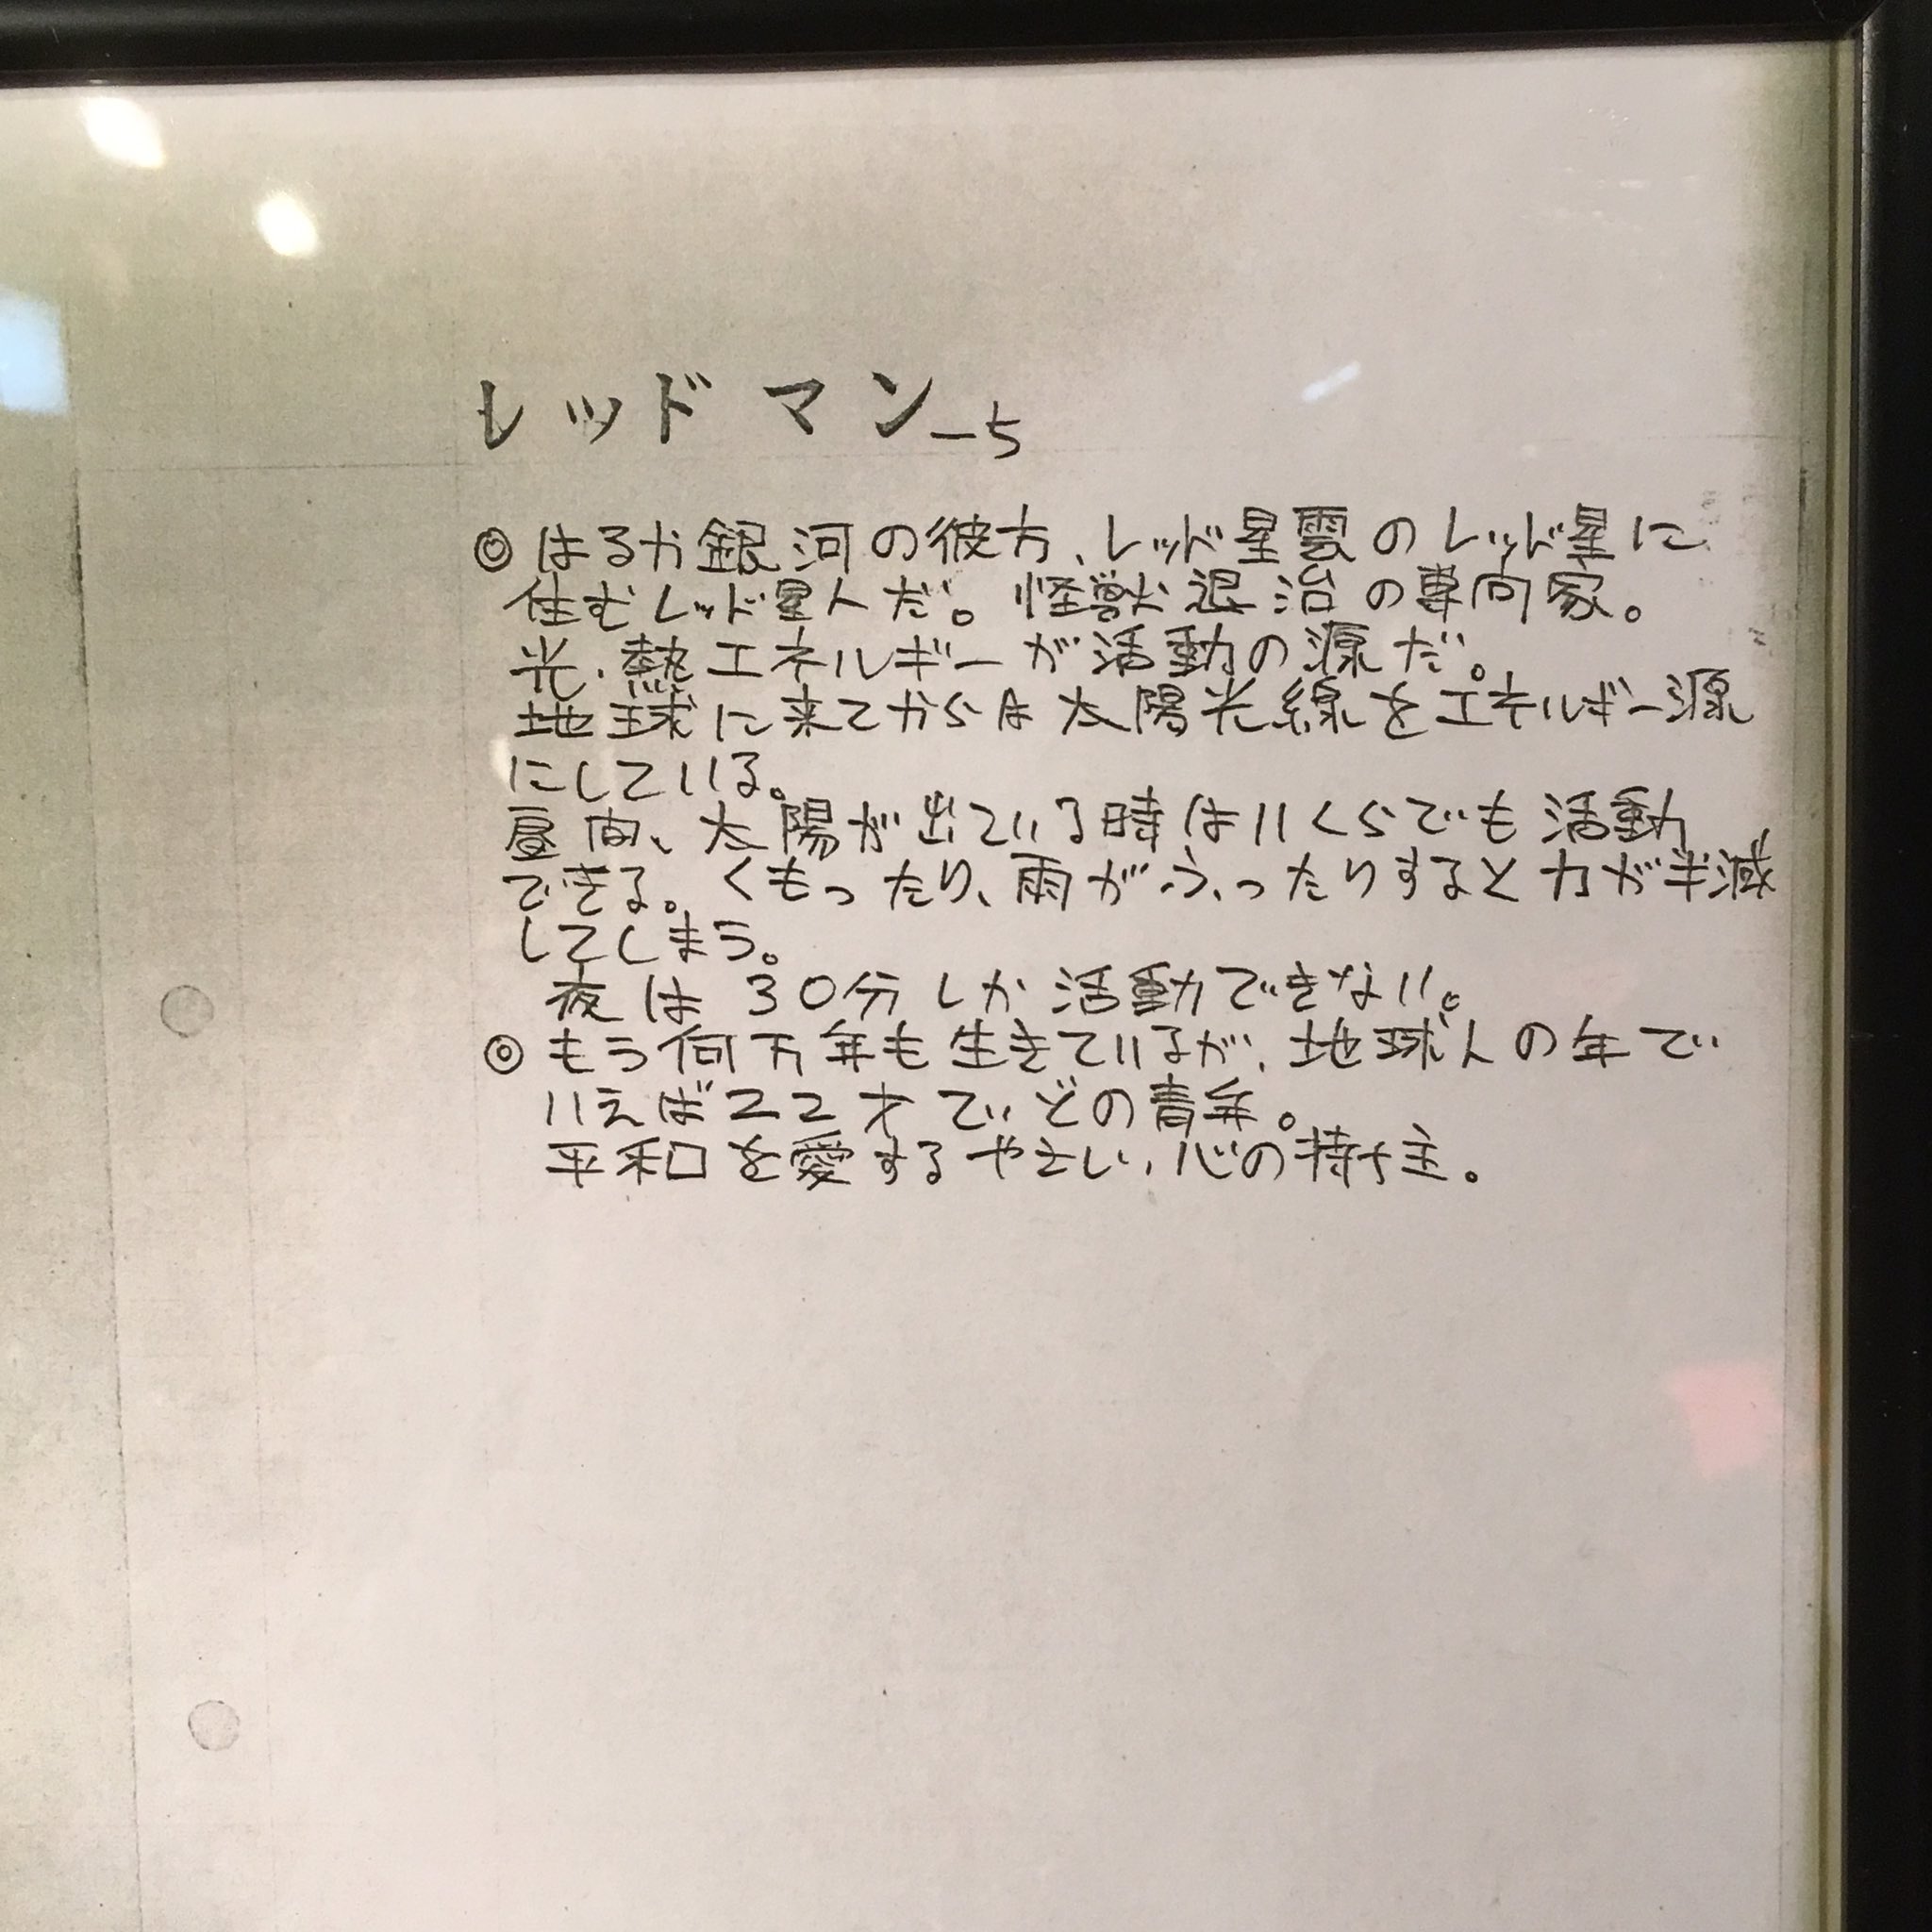 レッドマン-5
◎はるか銀河の彼方、レッド星雲のレッド星に
住むレッド星人だ。怪獣退治の専門家。
光・熱エネルギーが活動の源だ。
地球に来てからは太陽光線をエネルギー源
にしている。
昼間、太陽が出ている時はいくらでも活動
できる。くもったり、雨がふったりすると力が半減
してしまう。
夜は30分しか活動できない。
◎もう何万年も生きているが、地球人の年で
いえば22才ていどの青年。
平和を愛するやさしい心の持ち主。